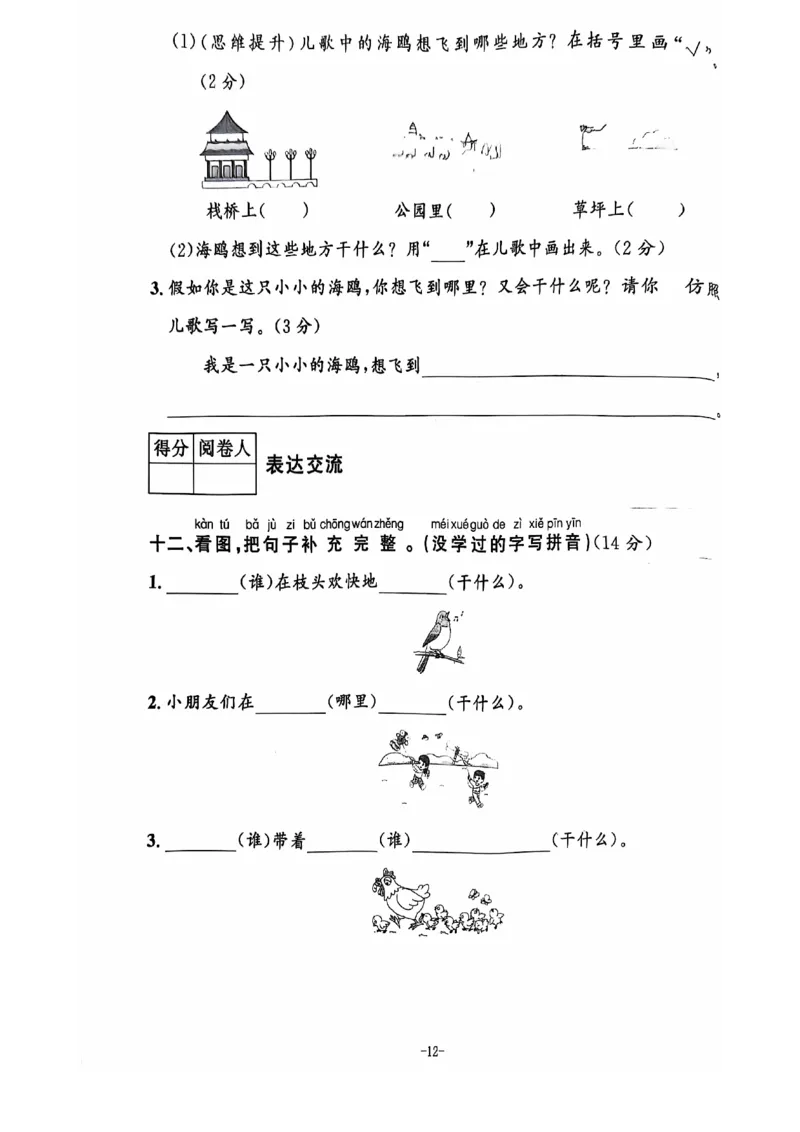 (1)(思维提升)儿歌中的海鸥想飞到哪些地方？在括号里画“√”。
(2分)
栈桥上(　　) 公园里(　　) 草坪上(　　)
(2)海鸥想到这些地方干什么？用“____”在儿歌中画出来。(2分)
3.假如你是这只小小的海鸥，你想飞到哪里？又会干什么呢？请你 仿照
儿歌写一写。(3分)
我是一只小小的海鸥，想飞到______________，
______________。
得分 阅卷人
表达交流
kàn tú bǎ jù zi bǔ chōng wán zhěng méi xué guò de zì xiě pīn yīn
十二、看图，把句子补充完整。(没学过的字写拼音)(14分)
1.________(谁)在枝头欢快地________(干什么)。
2.小朋友们在________(哪里)________(干什么)。
3.________(谁)带着________(谁)______________(干什么)。
-12-